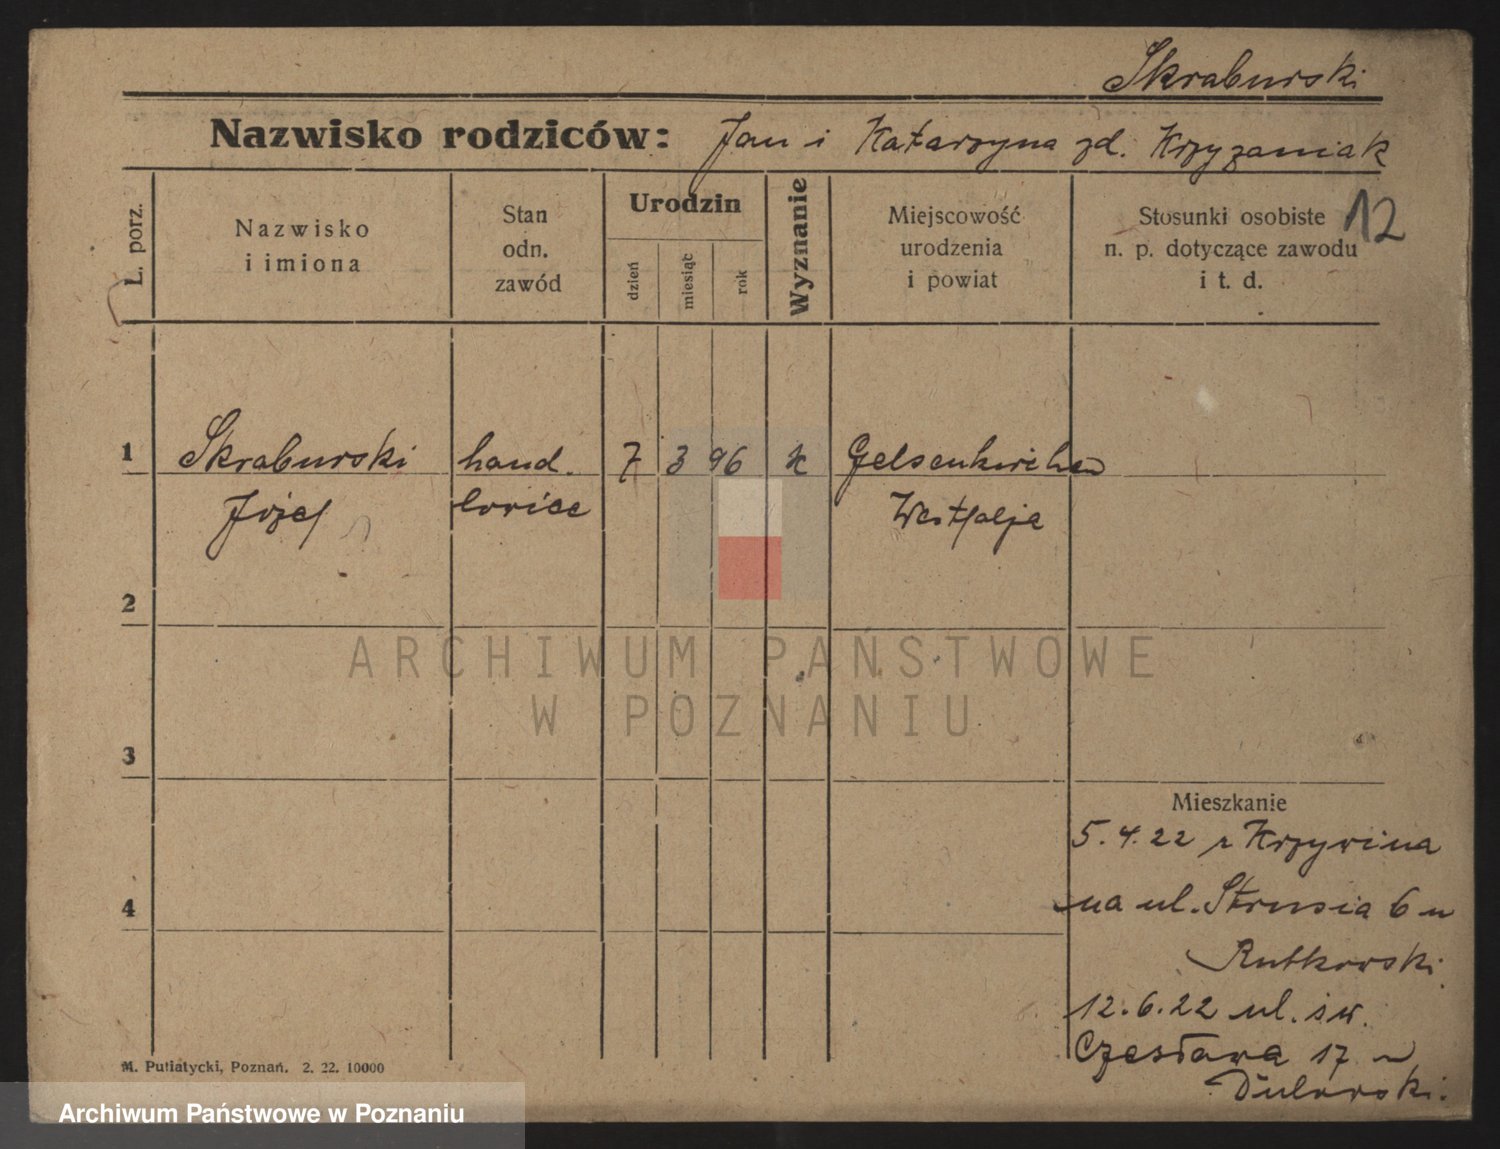 Skraburski
Nazwisko rodziców: Jan i Katarzyna zd. Krzyzaniak
L. porz.
Nazwisko
i imiona
Stan
odn.
zawód
Urodzin
dzień
miesiąc
rok
Wyznanie
Miejscowość
urodzenia
i powiat
Stosunki osobiste
n. p. dotyczące zawodu
i t. d.
12
1 Skraburski hand. 7 3 96 k Gelsenkirchen
Józef Westfalja
2
ARCHIWUM PAŃSTWOWE
W POZNANIU
3
Mieszkanie
5.4.22 z Krzywina
4
na ul. Strusia 6 u
Rutkowski
12.6.22 ul. św.
Czesława 17 u
M. Putiatycki, Poznań. 2. 22. 10000
Archiwum Państwowe w Poznaniu